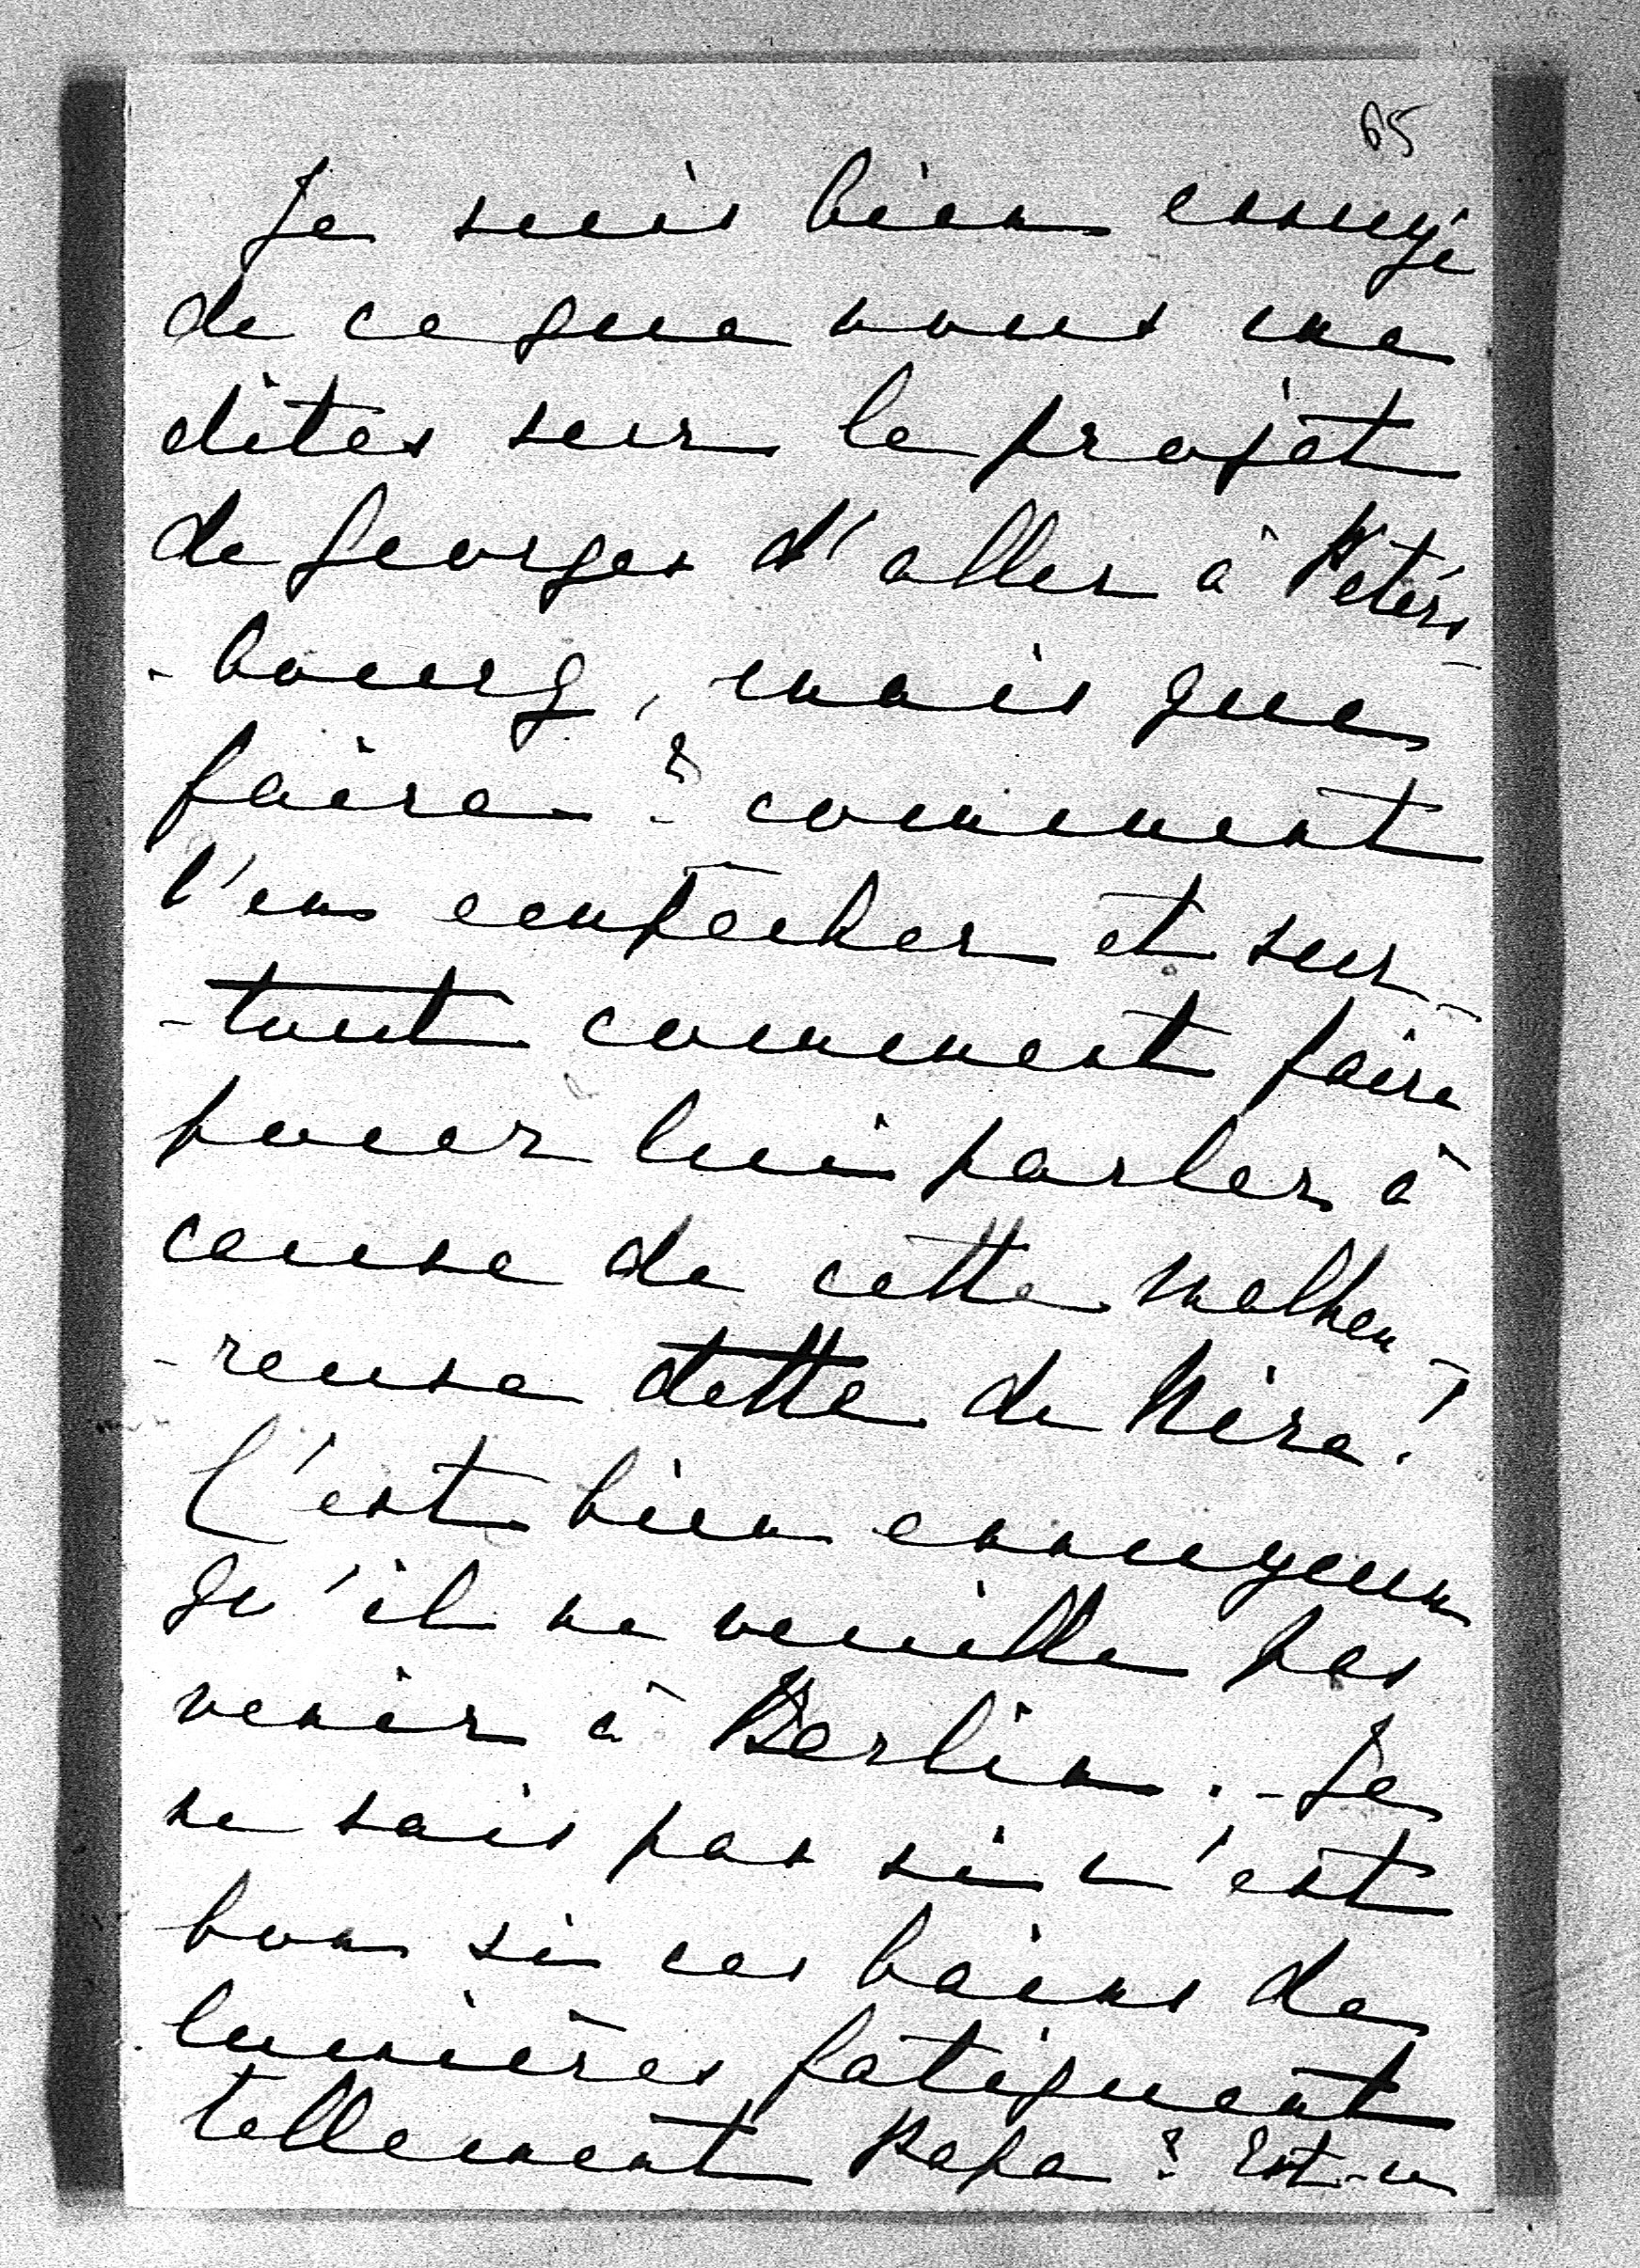 65
Je suis bien ennuyé
de ce que vous me
dites sur le projet
de Georges d'aller à Péters
-bourg, mais que
faire? comment
l'en empêcher et sur-
-tout comment faire
pour lui parler à
cause de cette malheu-
-reuse dette de Mère!
C'est bien ennuyeux
qu'il ne veuille pas
venir à Berlin. - Je
ne sais pas si c'est
bon si ces bains de
lumières fatiguent
tellement Papa? Est-ce